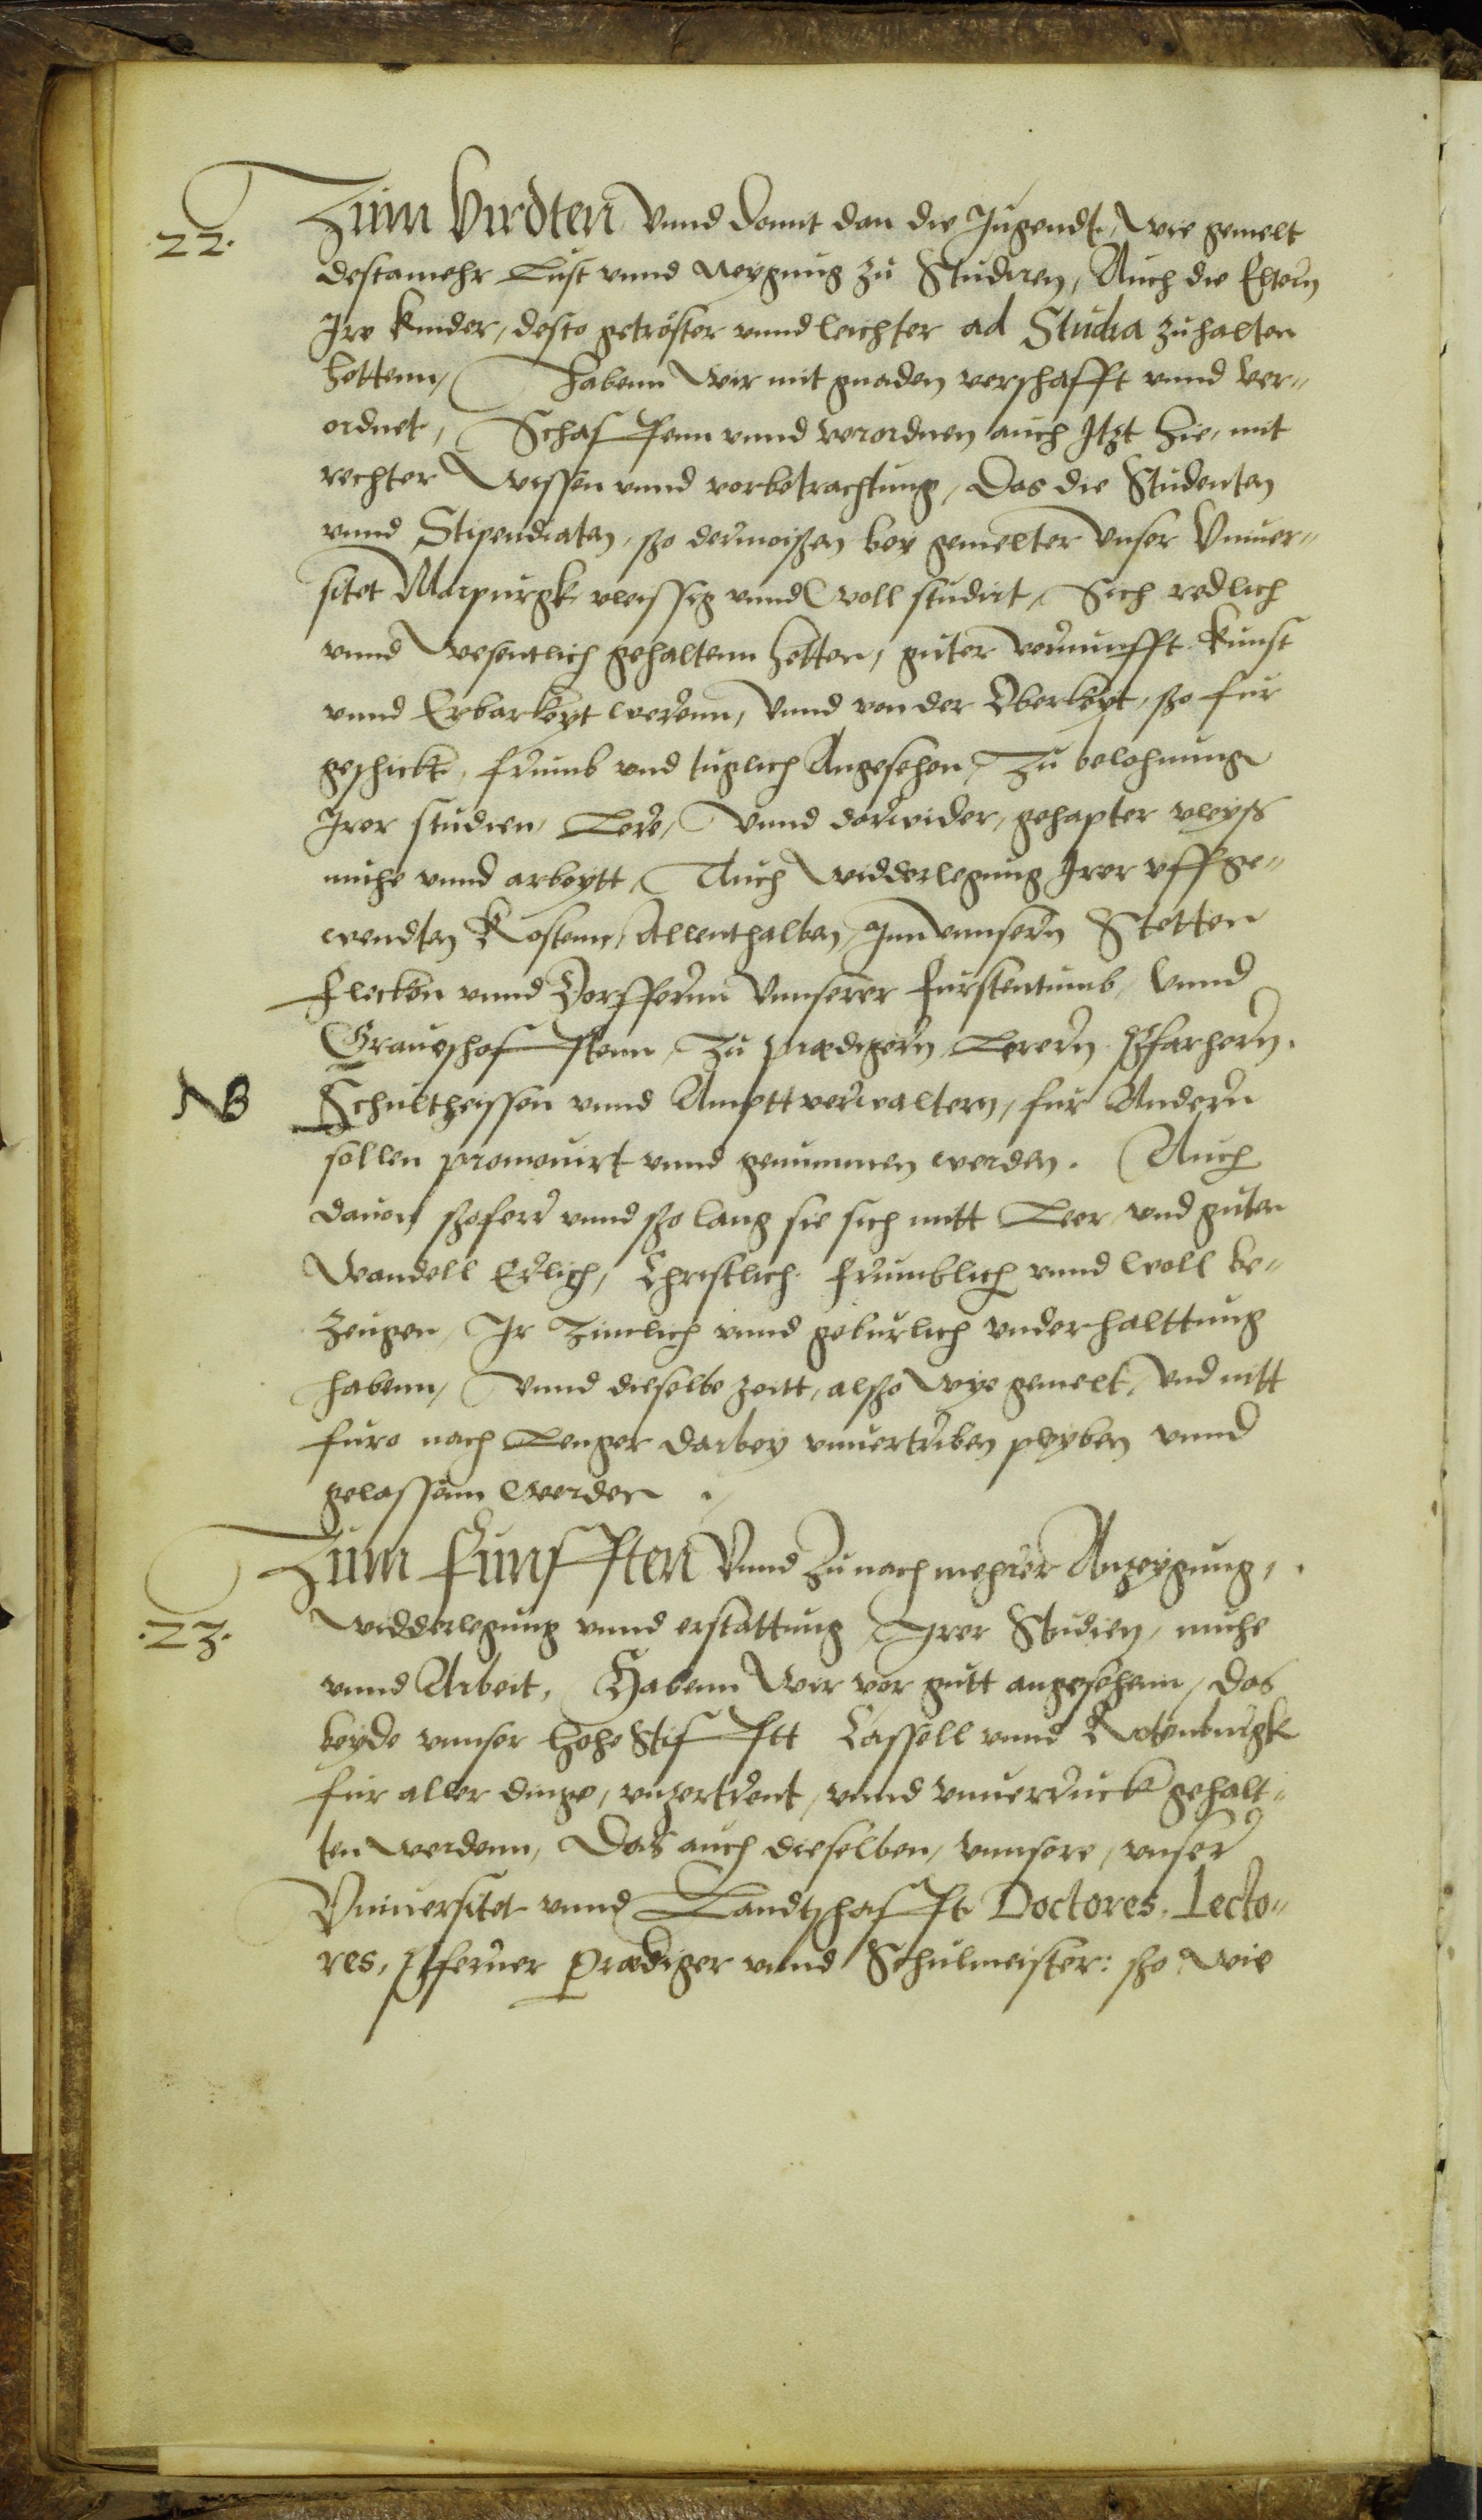 22.
Zum Virdten Vnnd damit dan die Jugendt, wie gemelt
destamehr Lust vnnd Neygung zu Studiren, Auch die Eltern
Jre kinder, desto getröster vnnd leichter ad Studia zuhalten
hettenn, habenn wir mit gnaden verschafft vnnd ver„
ordnet, Schaffenn vnnd verordnen auch Jtzt hie, mit
rechter wissen vnnd vorbetrachtung, Das die Studenten
vnnd Stipendiaten, sso dermoissen bey gemelter vnser Vniuer„
sitet Marpurgk vleissig vnnd woll studirt, Sich redlich
vnnd wesentlich gehaltenn hetten, guter vernunfft kunst
vnnd Erbarkeyt werenn, Vnnd von der Oberkeyt, sso fur
geschickt, frumb vnd tuglich Angesehen, Zu belohnung
Jrer studien, Lere, Vnnd darwider, gehapter vleyss
muhe vnnd arbeytt, Auch widderlegung Jrer vffge„
wendten Kostenn, Allenthalben Jnn vnnsern Stetten
Flecken vnnd Dorffernn Vnnserer furstentumb, Vnnd
Graueschafftenn, Zu predigern, Lerern Pfarhern.
NB
Schultheissen vnnd Amptt verwaltern, fur Andern
sollen promouirt vnnd genummen werden. Auch
dauon ssofern vnnd sso lang sie sich mitt Leer vnd guten
Wandell Erlich, Christlich frumblich vnnd woll be„
zeugen, Jr Zimlich vnnd geburlich vnderhalttung
habenn, Vnnd dieselbe zeitt, alsso wye gemelt, Vnd nitt
furo nach Lenger darbey vnuertriben pleyben vnnd
gelassenn werden.
Zum Funfften Vnnd Zu nach mehrer Anzeygung,
.23.
widderlegung vnnd erstattung, Jrer Studien, muhe
vnnd Arbeit, Habenn wir vor gutt angesehenn, das
beyde vnnser hohe Stifftt Cassell vnnd Rotenburgk
fur aller dinge, vnzertrent, vnnd vnuerruckt gehalt„
ten werdenn, Das auch dieselben, vnnsere, vnser
Vniuersitet vnnd Landtschafft Doctores, Lecto„
res, Pferner Prediger vnnd Schulmeister: sso wie